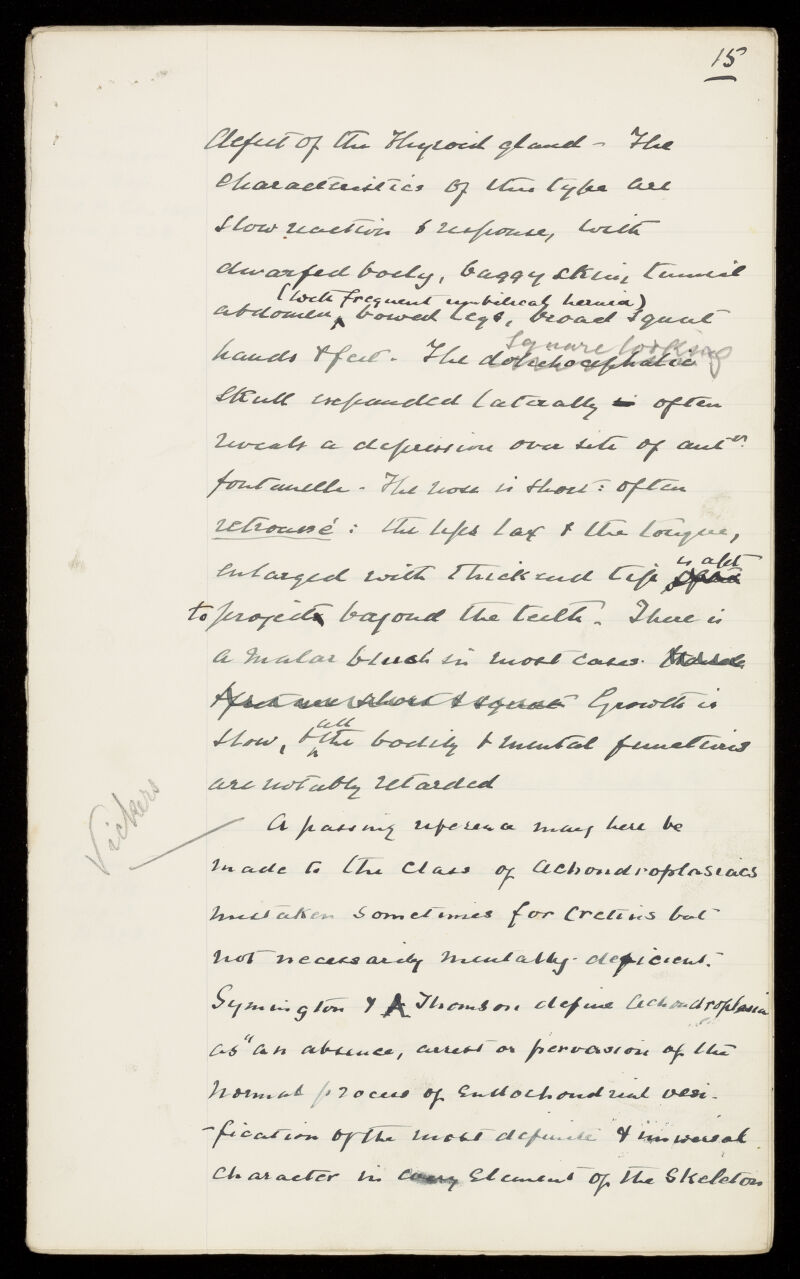 15
defect of the Thyroid gland - The
characteristics of this type are
slow reaction & response, with
dwarfed body, baggy skin, tumid
(with frequent umbilical hernia)
abdomen, bowed legs, broad squat
square looking
hands & feet. The dolichocephalic
skull expanded laterally is often
reveals a depression over site of antr.
fontanelle. The nose is short: often
retroussé: the lips lax & the tongue,
is apt
enlarged with thickened tip often
to project beyond the teeth. There is
a malar blush in most cases. Hands
feet are short & squat Growth is
all
slow, & the bodily & mental functions
are notably retarded
Vickers
A passing reference may here be
made to the class of Achondroplasiacs
mistaken sometimes for Cretins but
not necessarily mentally deficient.
Symington & A Thomson define Achondroplasia
as "an absence, arrest or pervasion of the
normal process of Endochondrial ossi-
-fication of the most definite & universal
character in every Element of the Skeleton